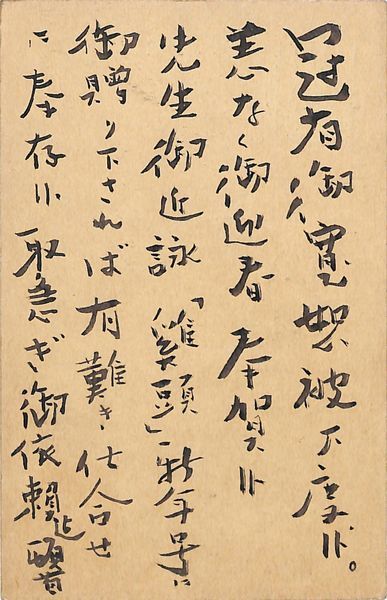 御寛恕被下度候。
恙なく御迎春奉賀候
先生御近詠「雞頭」新年号に
御贈り下されば有難き仕合せ
に奉存候 取急ぎ御依頼迄